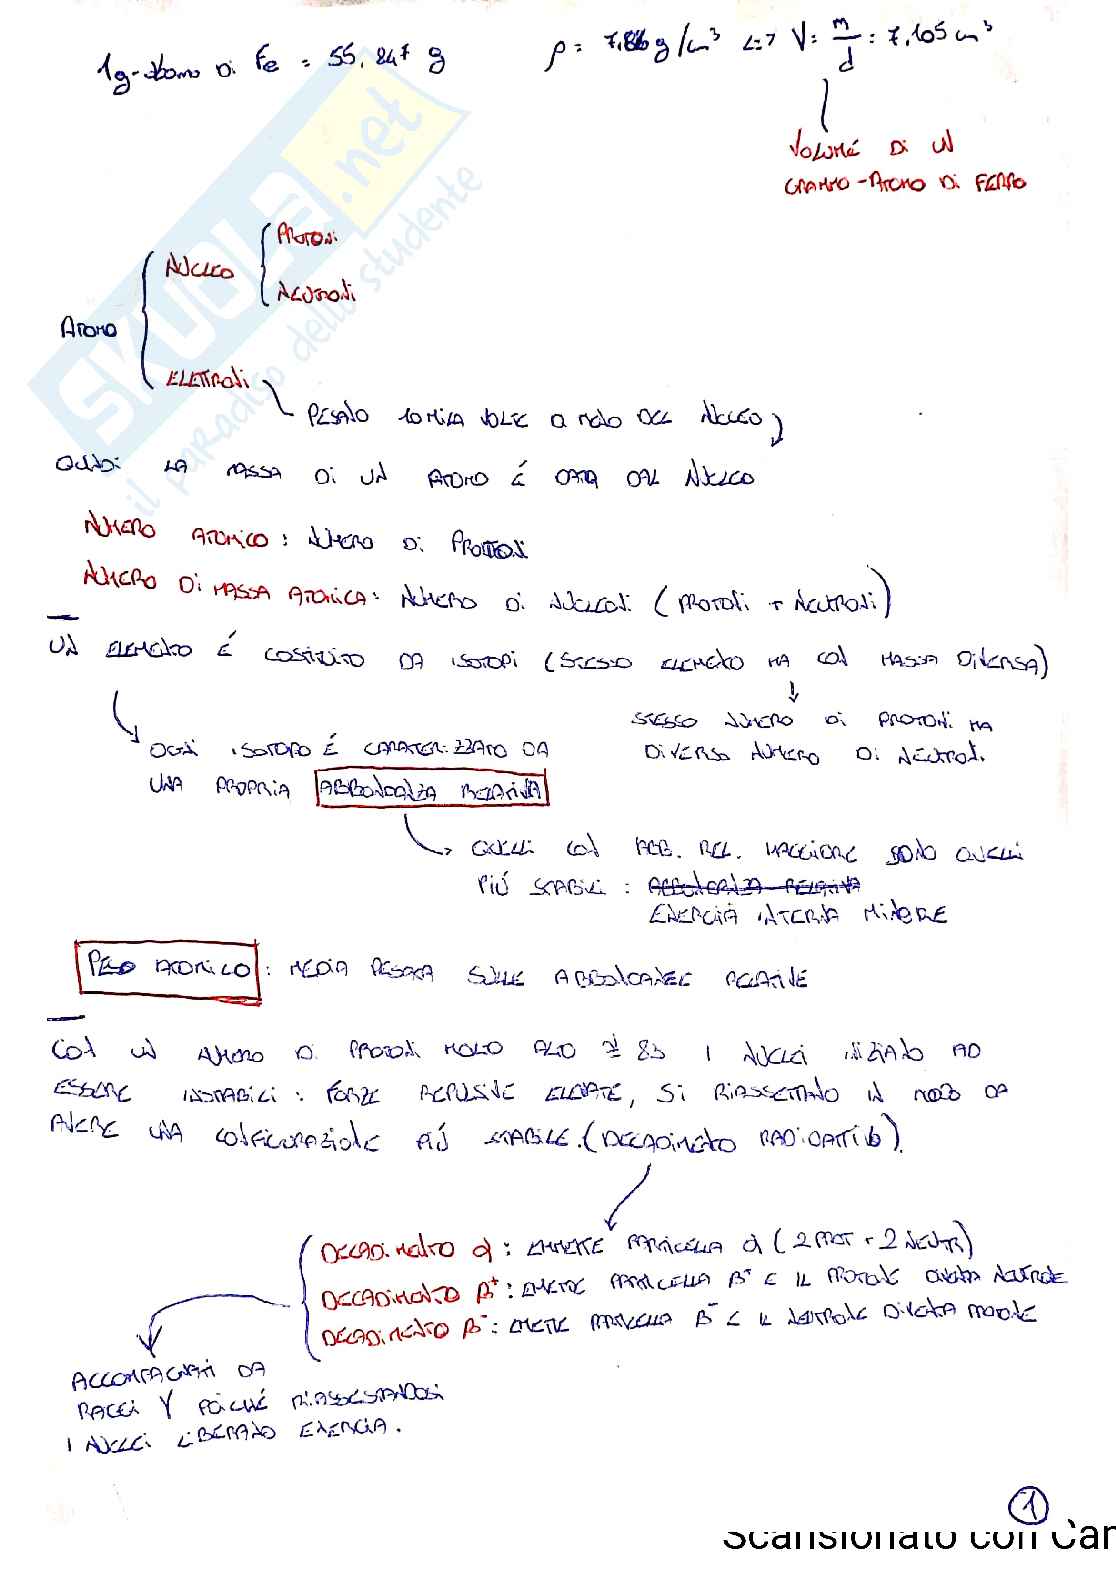 1g-atomo di Fe = 55,847 g
ρ = 7,86 g/cm³ <=> V = m/d = 7,105 cm³
VOLUME DI UN
GRAMMO-ATOMO DI FERRO
ATOMO
NUCLEO
PROTONI
NEUTRONI
ELETTRONI
PESANO 10 MILA VOLTE DI MENO DEL NUCLEO
QUINDI LA MASSA DI UN ATOMO É DATA DAL NUCLEO
NUMERO ATOMICO: NUMERO DI PROTONI
NUMERO DI MASSA ATOMICA: NUMERO DI NUCLEONI (PROTONI + NEUTRONI)
UN ELEMENTO É COSTITUITO DA ISOTOPI (STESSO ELEMENTO MA CON MASSA DIVERSA)
STESSO NUMERO DI PROTONI MA
DIVERSO NUMERO DI NEUTRONI
OGNI ISOTOPO É CARATTERIZZATO DA
UNA PROPRIA ABBONDANZA RELATIVA
QUELLI CON ABB. REL. MAGGIORE SONO QUELLI
PIÚ STABILI: ABBONDANZA RELATIVA
ENERGIA INTERNA MINORE
PESO ATOMICO: MEDIA PESATA SULLE ABBONDANZE RELATIVE
CON UN NUMERO DI PROTONI MOLTO ALTO ≥ 83 I NUCLEI INIZIANO AD
ESSERE INSTABILI: FORZE REPULSIVE ELEVATE, SI RIASSETTANO IN MODO DA
AVERE UNA CONFIGURAZIONE PIÚ STABILE. (DECADIMENTO RADIOATTIVO).
DECADIMENTO α: EMETTE PARTICELLA α (2 PROT + 2 NEUTR)
DECADIMENTO β⁺: EMETTE PARTICELLA β⁺ E IL PROTONE DIVENTA NEUTRONE
DECADIMENTO β⁻: EMETTE PARTICELLA β⁻ E IL NEUTRONE DIVENTA PROTONE
ACCOMPAGNATI DA
RAGGI γ POICHÉ RIASSESTANDOSI
I NUCLEI LIBERANO ENERGIA.
1
Scansionato con Cam
SKUOLA.net
il paradiso dello studente